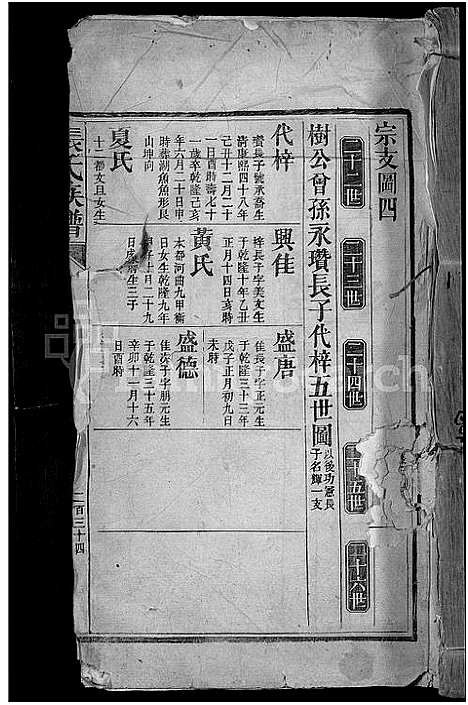 宗支圖四
二十二世
二十三世
二十四世
二十五世
二十六世
樹公曾孫永瓚長子代梓五世圖
以後功憲長
子名輝一支
代梓
瓚長子號承喬生
清康熙四十八年
己丑十二月二十
一日酉時壽七十
一歲乾隆己亥
年六月二十日申
時葬湖魚形艮
山坤向
夏氏
十二都文旦女生
興佳
梓長子字美文生
于乾隆十年乙丑
正月十四日亥時
黃氏
本都河曲九甲衡
日女生乾隆九年
甲子七月二十九
日
生三子
盛唐
佳長子字正元生
于乾隆三十三年
戊子正月初九日
未時
盛德
佳次子字朋元生
于乾隆三十五年
辛卯十一月十六
日酉時
張氏族譜
二百三十四